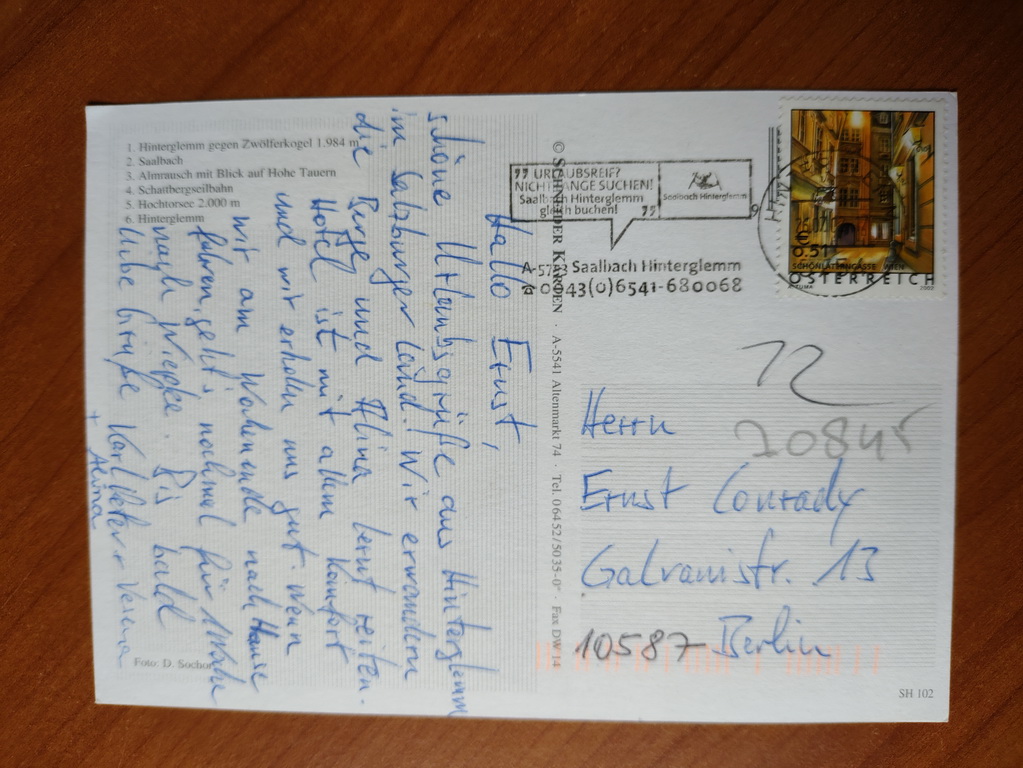 1. Hinterglemm gegen Zwölferkogel 1.984 m
2. Saalbach
3. Almrausch mit Blick auf Hohe Tauern
4. Schattbergseilbahn
5. Hochtorsee 2.000 m
6. Hinterglemm
Hallo Ernst,
schöne Urlaubsgrüße aus Hinterglemm
im Salzburger Land! Wir erwandern
die Berge und Alina lernt reiten.
Hotel ist mit allem Komfort
und wir erholen uns gut. Wenn
wir am Wochenende nach Hause
fahren, geht's nochmal für 1 Woche
nach Wiepke. Bis bald
Liebe Grüße Karl Peter + Verena
+ Alina
Foto: D. Sochor
© SCHNEIDER KARTEN · A-5541 Altenmarkt 74 · Tel. 06452/5035-0* · Fax DW 14
URLAUBSREIF?
NICHT LANGE SUCHEN!
Saalbach Hinterglemm
gleich buchen!
Saalbach Hinterglemm
A-5753 Saalbach Hinterglemm
☎ 0043(0)6541-680068
€ 0.51
SCHÖNLATERNGASSE WIEN
ÖSTERREICH
2002
12
10845
Herrn
Ernst Conrady
Galvanistr. 13
10587 Berlin
SH 102